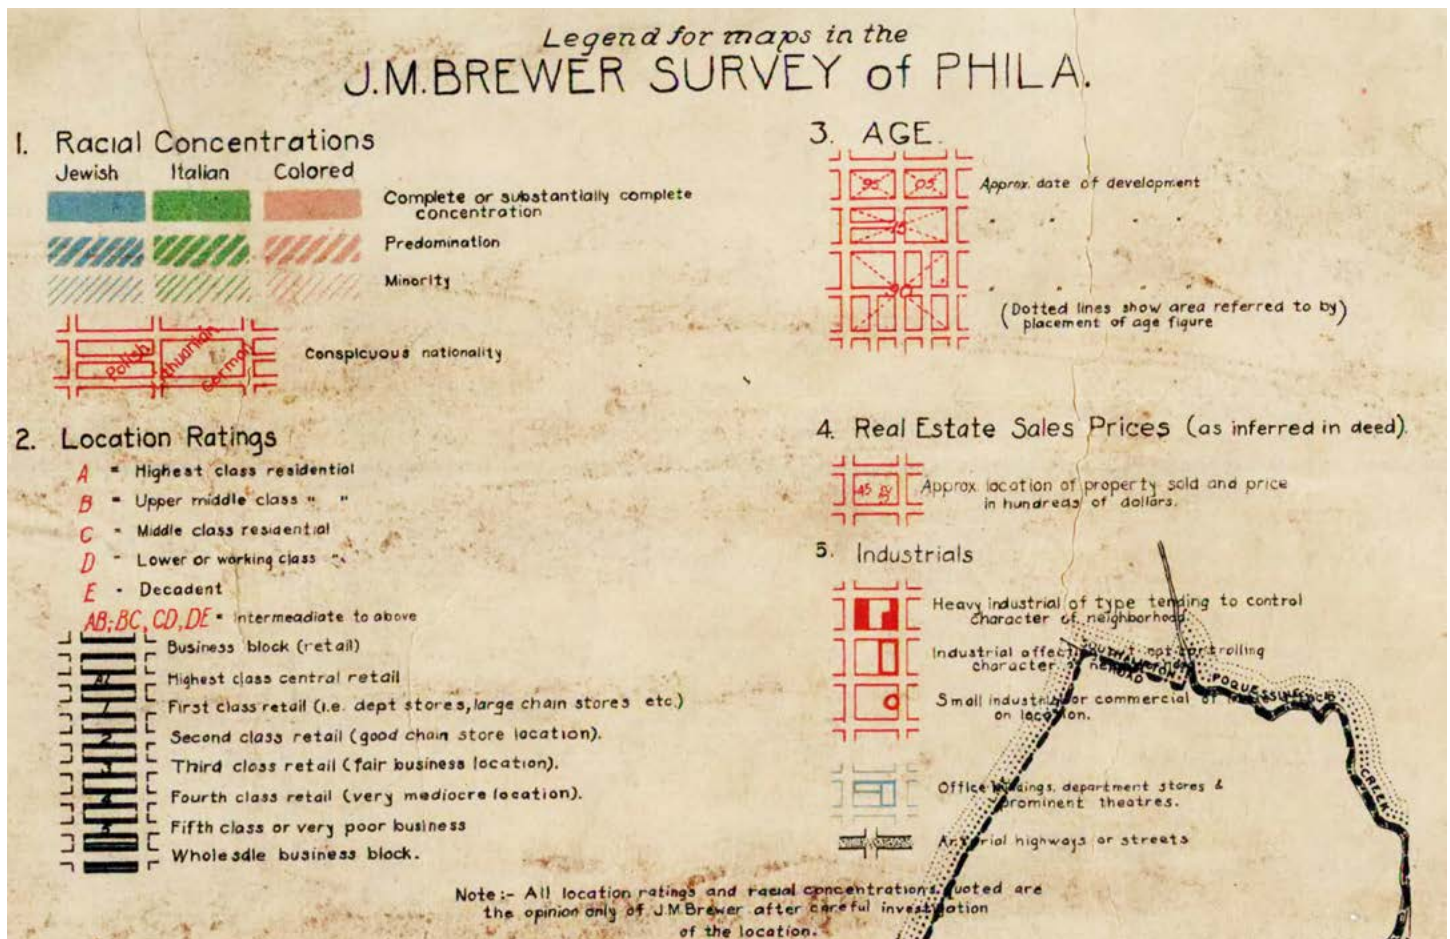 Legend for maps in the
J.M.BREWER SURVEY of PHILA.
1. Racial Concentrations
Jewish Italian Colored
Complete or substantially complete
concentration
Predomination
Minority
Polish
Lithuanian
German
Conspicuous nationality
2. Location Ratings
A = Highest class residential
B = Upper middle class " "
C - Middle class residential
D - Lower or working class "
E - Decadent
AB, BC, CD, DE = Intermeadiate to above
Business block (retail)
A1 Highest class central retail
1 First class retail (i.e. dept stores, large chain stores etc.)
2 Second class retail (good chain store location).
3 Third class retail (fair business location).
4 Fourth class retail (very mediocre location).
5 Fifth class or very poor business
Wholesale business block.
3. AGE.
95 05 Approx. date of development
15 " " " "
90 " " " "
(Dotted lines show area referred to by)
placement of age figure
4. Real Estate Sales Prices (as inferred in deed).
45
Approx. location of property sold and price
in hundreds of dollars.
5. Industrials
Heavy industrial of type tending to control
character of neighborhood.
Industrial not controlling
character
Small industrial or commercial of
on location.
Office buildings, department stores &
prominent theatres.
Arterial highways or streets
SOUTHAMPTON
ROAD
POQUESSING
CREEK
Note:- All location ratings and racial concentrations quoted are
the opinion only of J.M.Brewer after careful investigation
of the location.